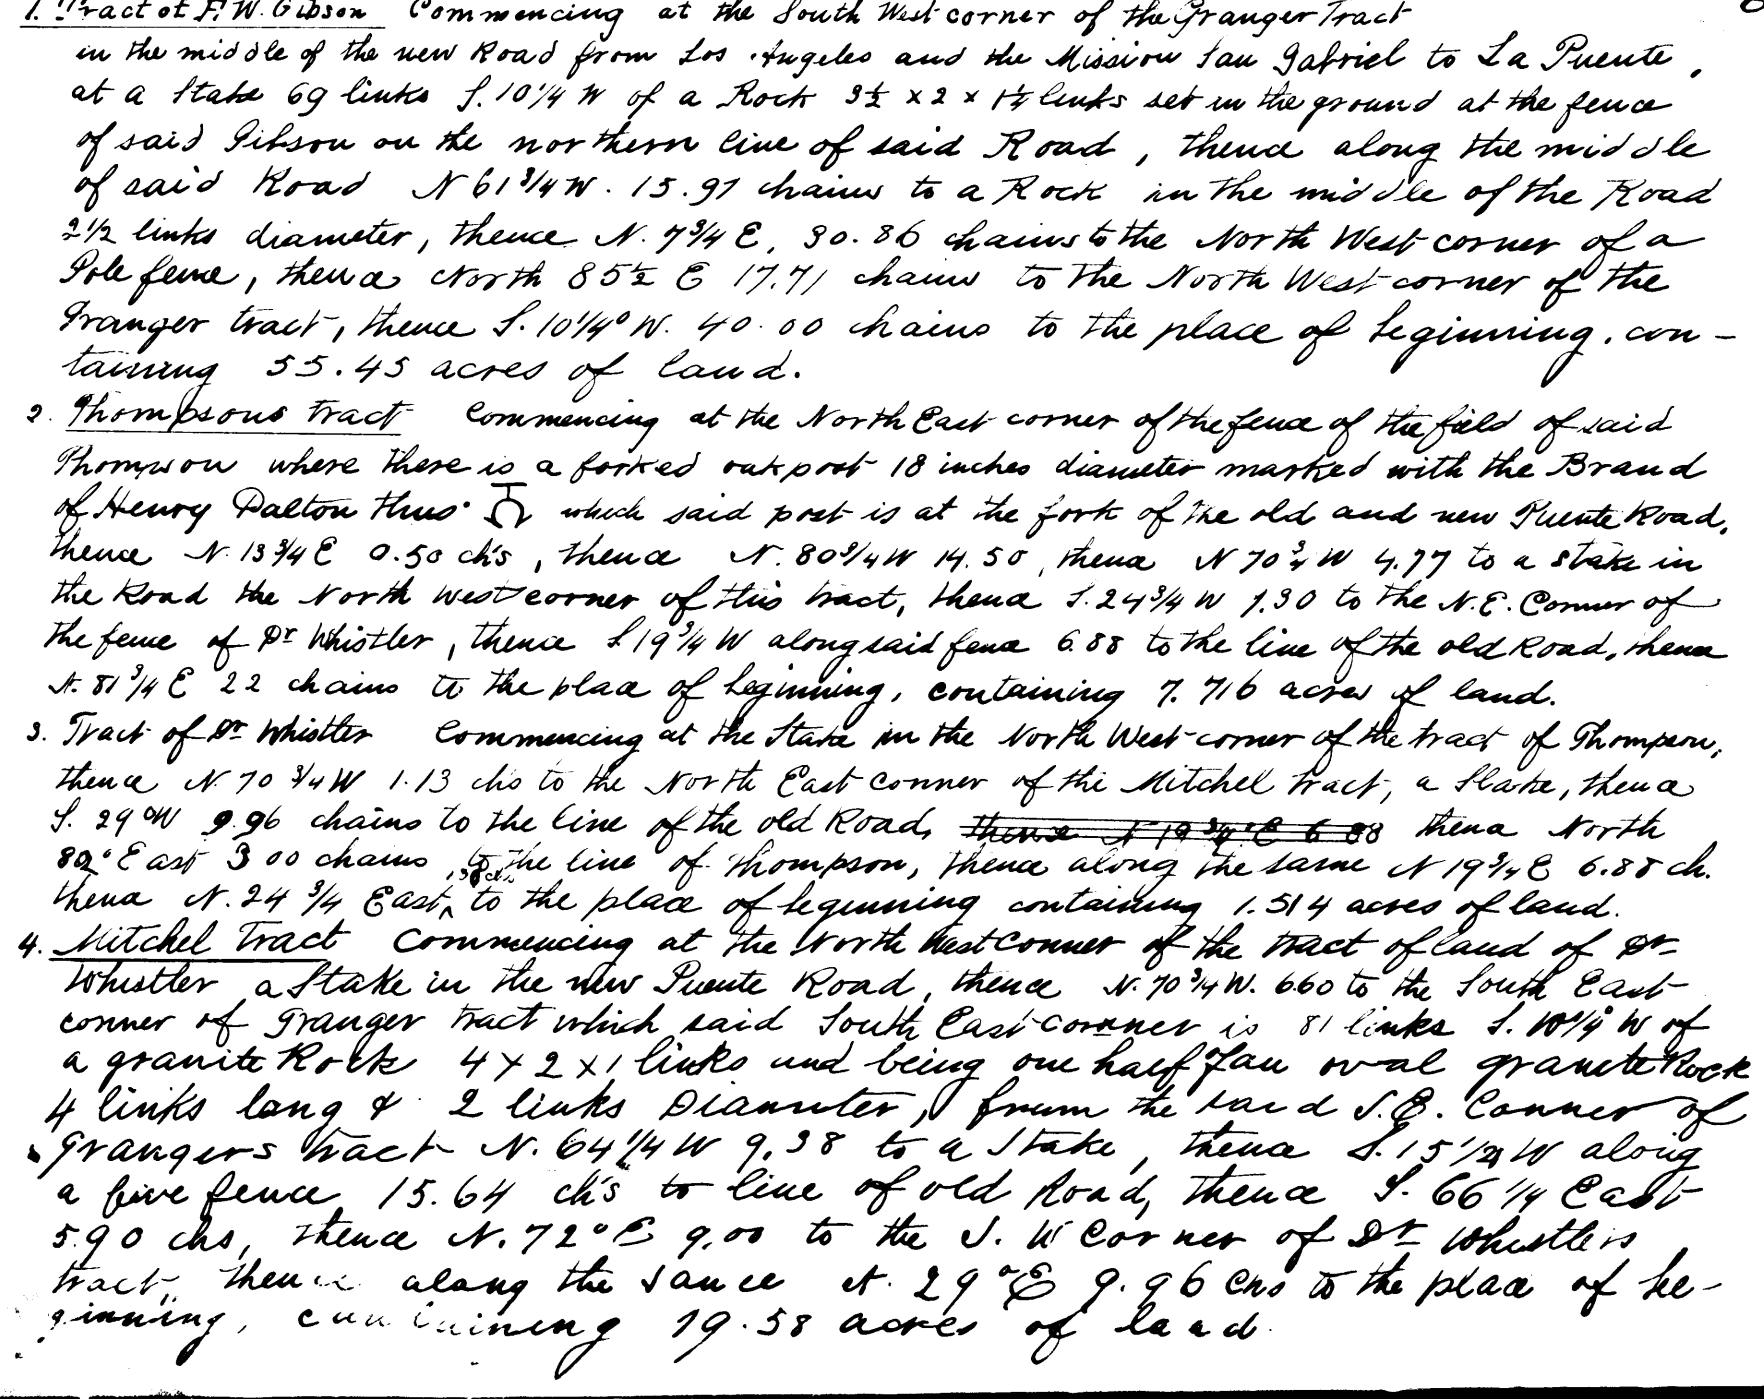 1. Tract of F. W. Gibson Commencing at the South West corner of the Granger Tract
in the middle of the new Road from Los Angeles and the Mission San Gabriel to La Puente,
at a Stake 69 links S. 10 1/4 W of a Rock 3 1/2 x 2 x 1 1/2 links set in the ground at the fence
of said Gibson on the northern line of said Road, thence along the middle
of said Road N 61 3/4 W. 15.97 chains to a Rock in the middle of the Road
2 1/2 links diameter, thence N. 7 3/4 E, 30.86 chains to the North West corner of a
Pole fence, thence North 85 1/2 E 17.71 chains to the North West corner of the
Granger tract, thence S. 10 1/4° W. 40.00 chains to the place of beginning, con-
taining 55.45 acres of land.
2. Thompsons tract Commencing at the North East corner of the fence of the field of said
Thompson where there is a forked oak post 18 inches diameter marked with the Brand
of Henry Dalton thus which said post is at the fork of the old and new Puente Road,
thence N. 13 3/4 E 0.50 ch's, thence N. 80 3/4 W 14.50, thence N 70 3/4 W 4.77 to a stake in
the Road the North West corner of this tract, thence S. 24 3/4 W 1.30 to the N.E. Corner of
the fence of Dr Whistler, thence S 19 3/4 W along said fence 6.88 to the line of the old Road, thence
N. 81 3/4 E 22 chains to the place of beginning, containing 7.716 acres of land.
3. Tract of Dr Whistler Commencing at the Stake in the North West corner of the tract of Thompson,
thence N 70 3/4 W 1.13 chs to the North East conner of the Mitchel tract, a Stake, thence
S. 29° W 9.96 chains to the line of the old Road, thence N 19 3/4° E 6 88 thence North
82° East 3 00 chains to the line of Thompson, thence along the same N 19 3/4 E 6.88 ch.
thence N. 24 3/4 East, to the place of beginning containing 1.514 acres of land.
4. Mitchel Tract Commencing at the North West Conner of the tract of land of Dr
Whistler a Stake in the new Puente Road, thence N. 70 3/4 W. 6.60 to the South East
conner of Granger tract which said South East corner is 81 links S. 10 1/4° W of
a granite Rock 4 x 2 x 1 links and being one half of an oval granete Rock
4 links long & 2 links Diameter, frum the said S.E. Conner of
Grangers tract N. 64 1/4 W 9.38 to a Stake, thence S. 15 1/2 W along
a live fence 15.64 ch's to line of old Road, thence S. 66 1/4 East
5.90 chs, thence N. 72° E 9.00 to the S. W Corner of Dr Whistlers
tract, thence along the same N. 29° E 9.96 Chs to the place of be-
ginning, containing 19.58 acres of land.